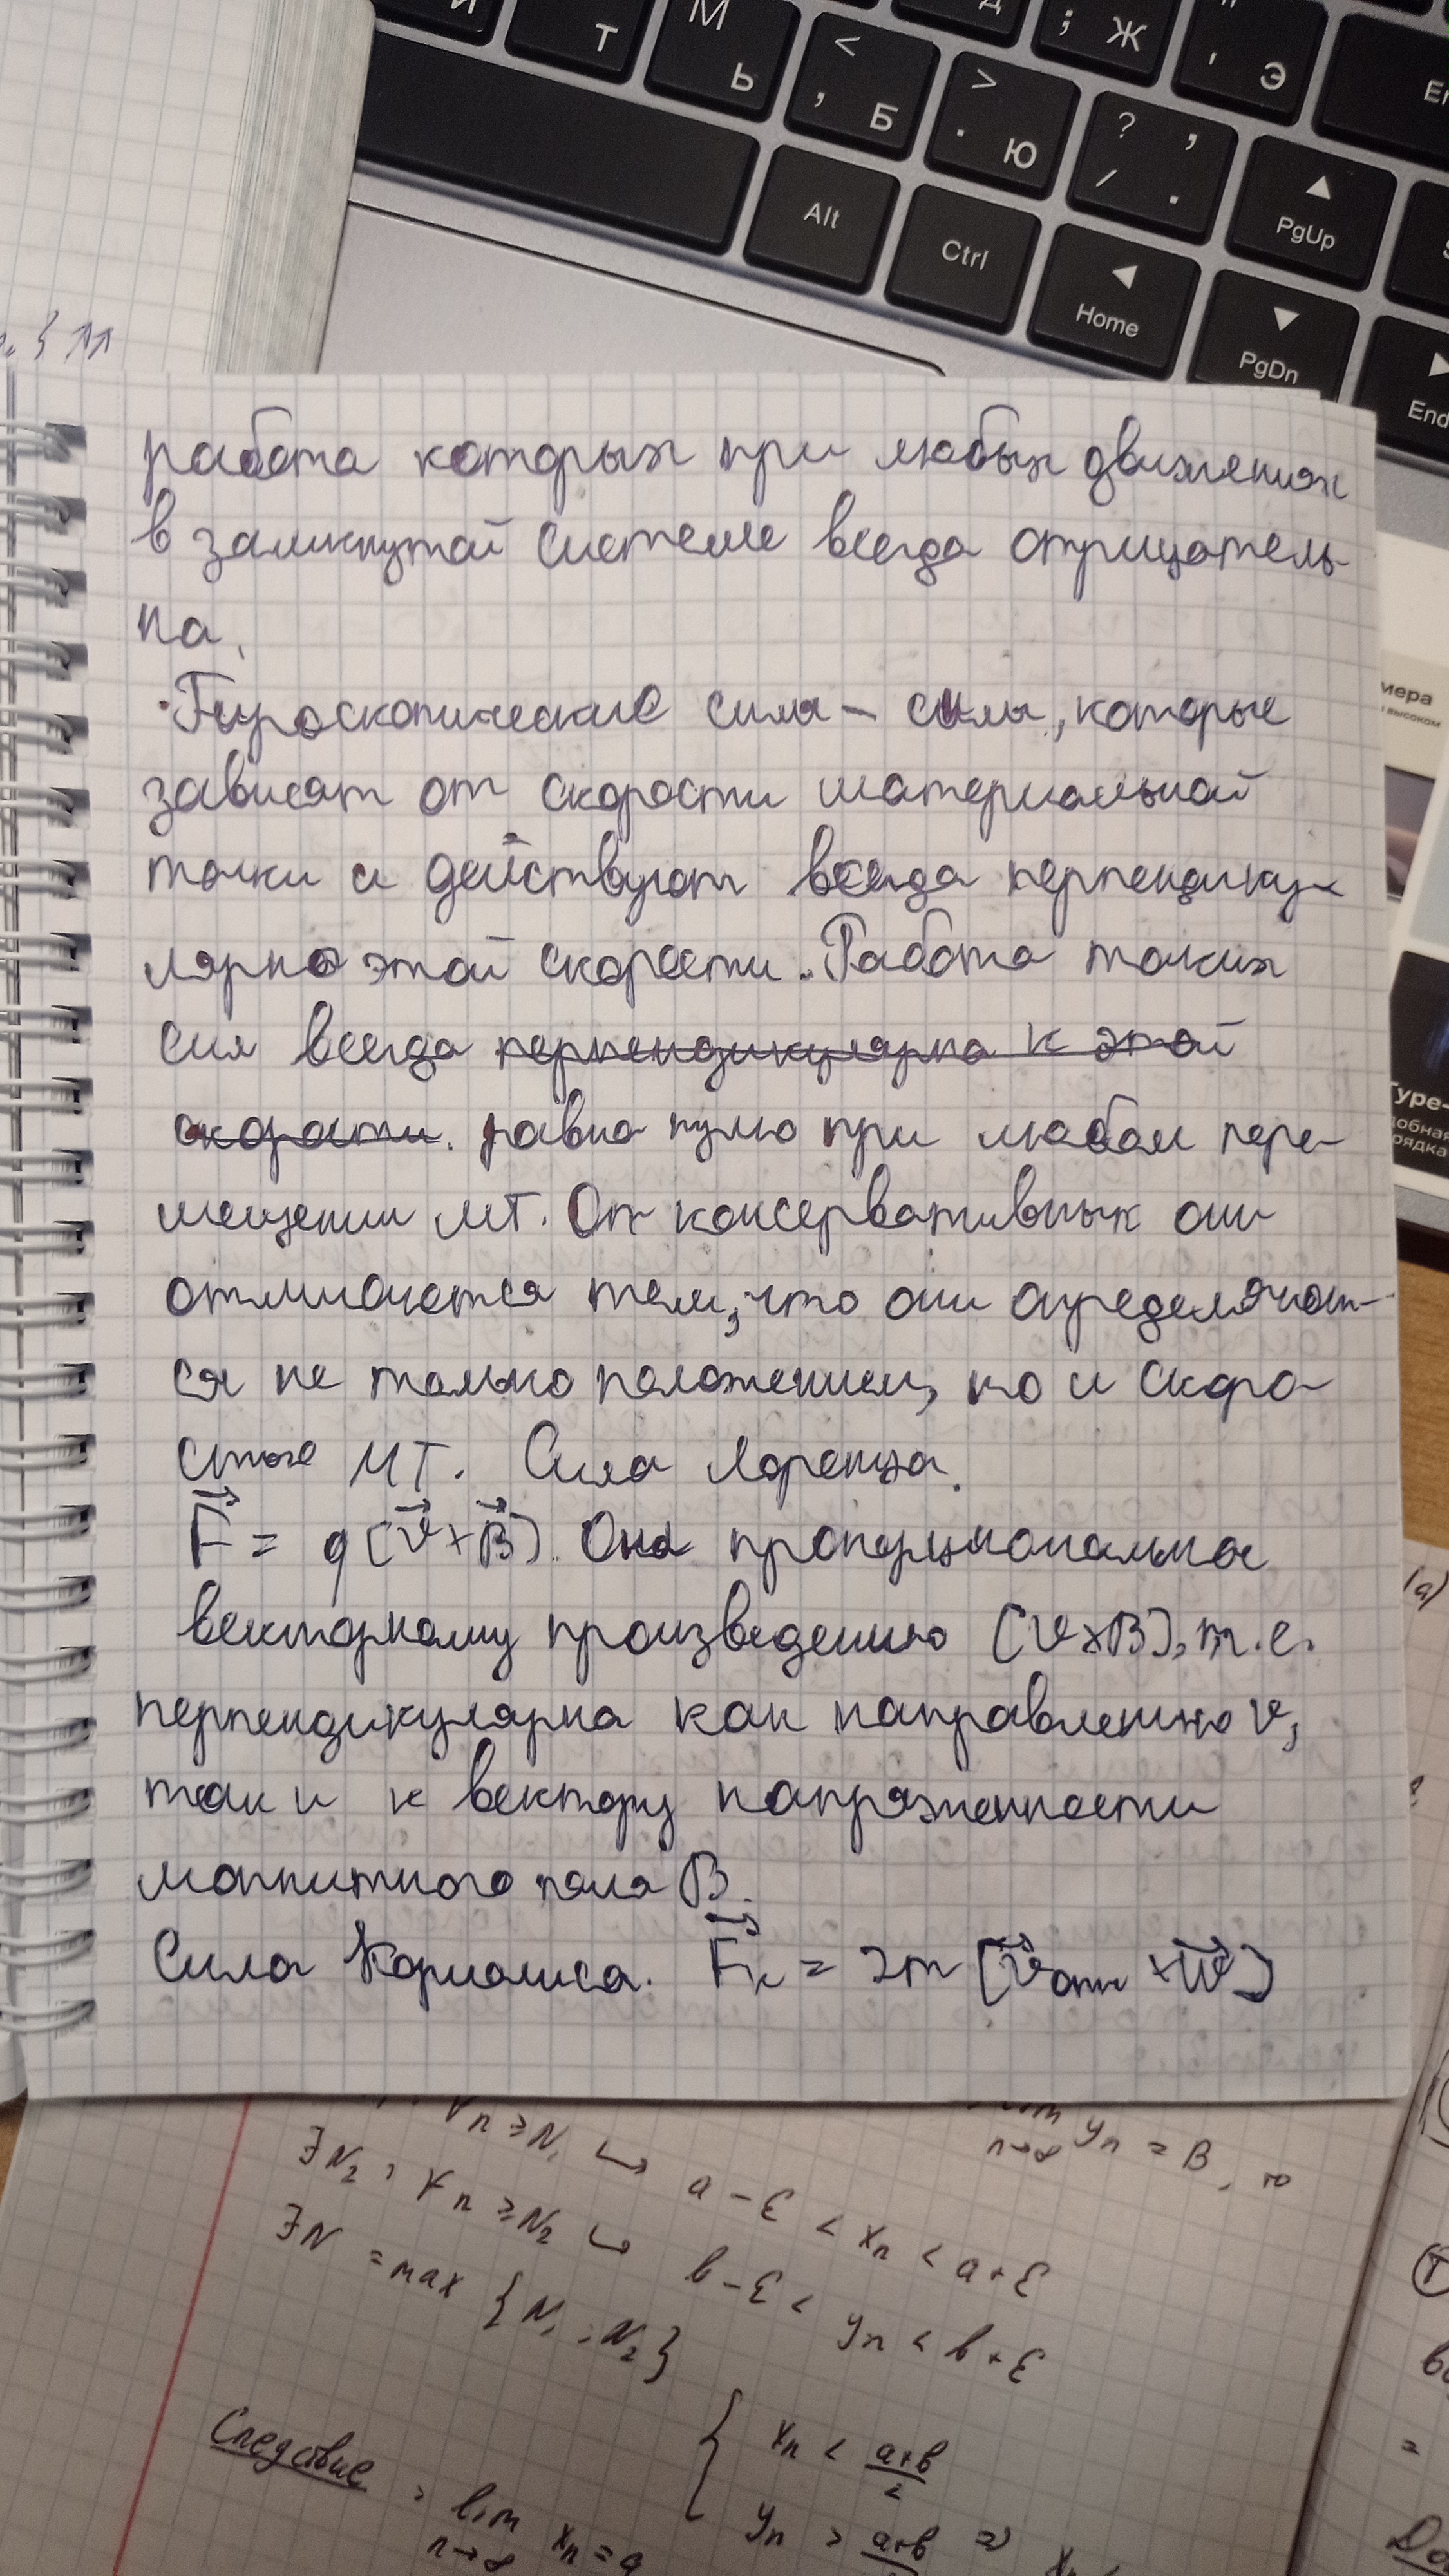 И
Т
М
Ь
<
,
Б
>
.
Ю
;
Ж
'
Э
?
,
/
.
Alt
Ctrl
Home
PgUp
PgDn
End
} ↑↑
работа которых при любых движениях
в замкнутой системе всегда отрицатель-
на.
Гироскопические силы – силы, которые
зависят от скорости материальной
точки и действуют всегда перпендику-
лярно этой скорости. Работа таких
сил всегда перпендикулярна к этой
скорости. равна нулю при любом пере-
мещении МТ. От консервативных они
отличаются тем, что они определяют-
ся не только положением, но и скоро-
стью МТ. Сила Лоренца.
F⃗ = q[v⃗×B⃗]. Она пропорциональна
векторному произведению [v×B], т.е.
перпендикулярна как направлению v,
так и к вектору напряженности
магнитного поля B.
Сила Кориолиса. F⃗к = 2m [v⃗отн × w⃗]
мера
высоком
Гуре-
добная
рядка
(a)
∀n ≥ N₁ ↪ a - ε < xₙ < a + ε
n→∞ yₙ = B,
∃N₂, ∀n ≥ N₂ ↪ b - ε < yₙ < b + ε
∃N = max {N₁; N₂}
Следствие: lim n→∞ xₙ = a
{ xₙ < a+b/2
yₙ > a+b ⇒